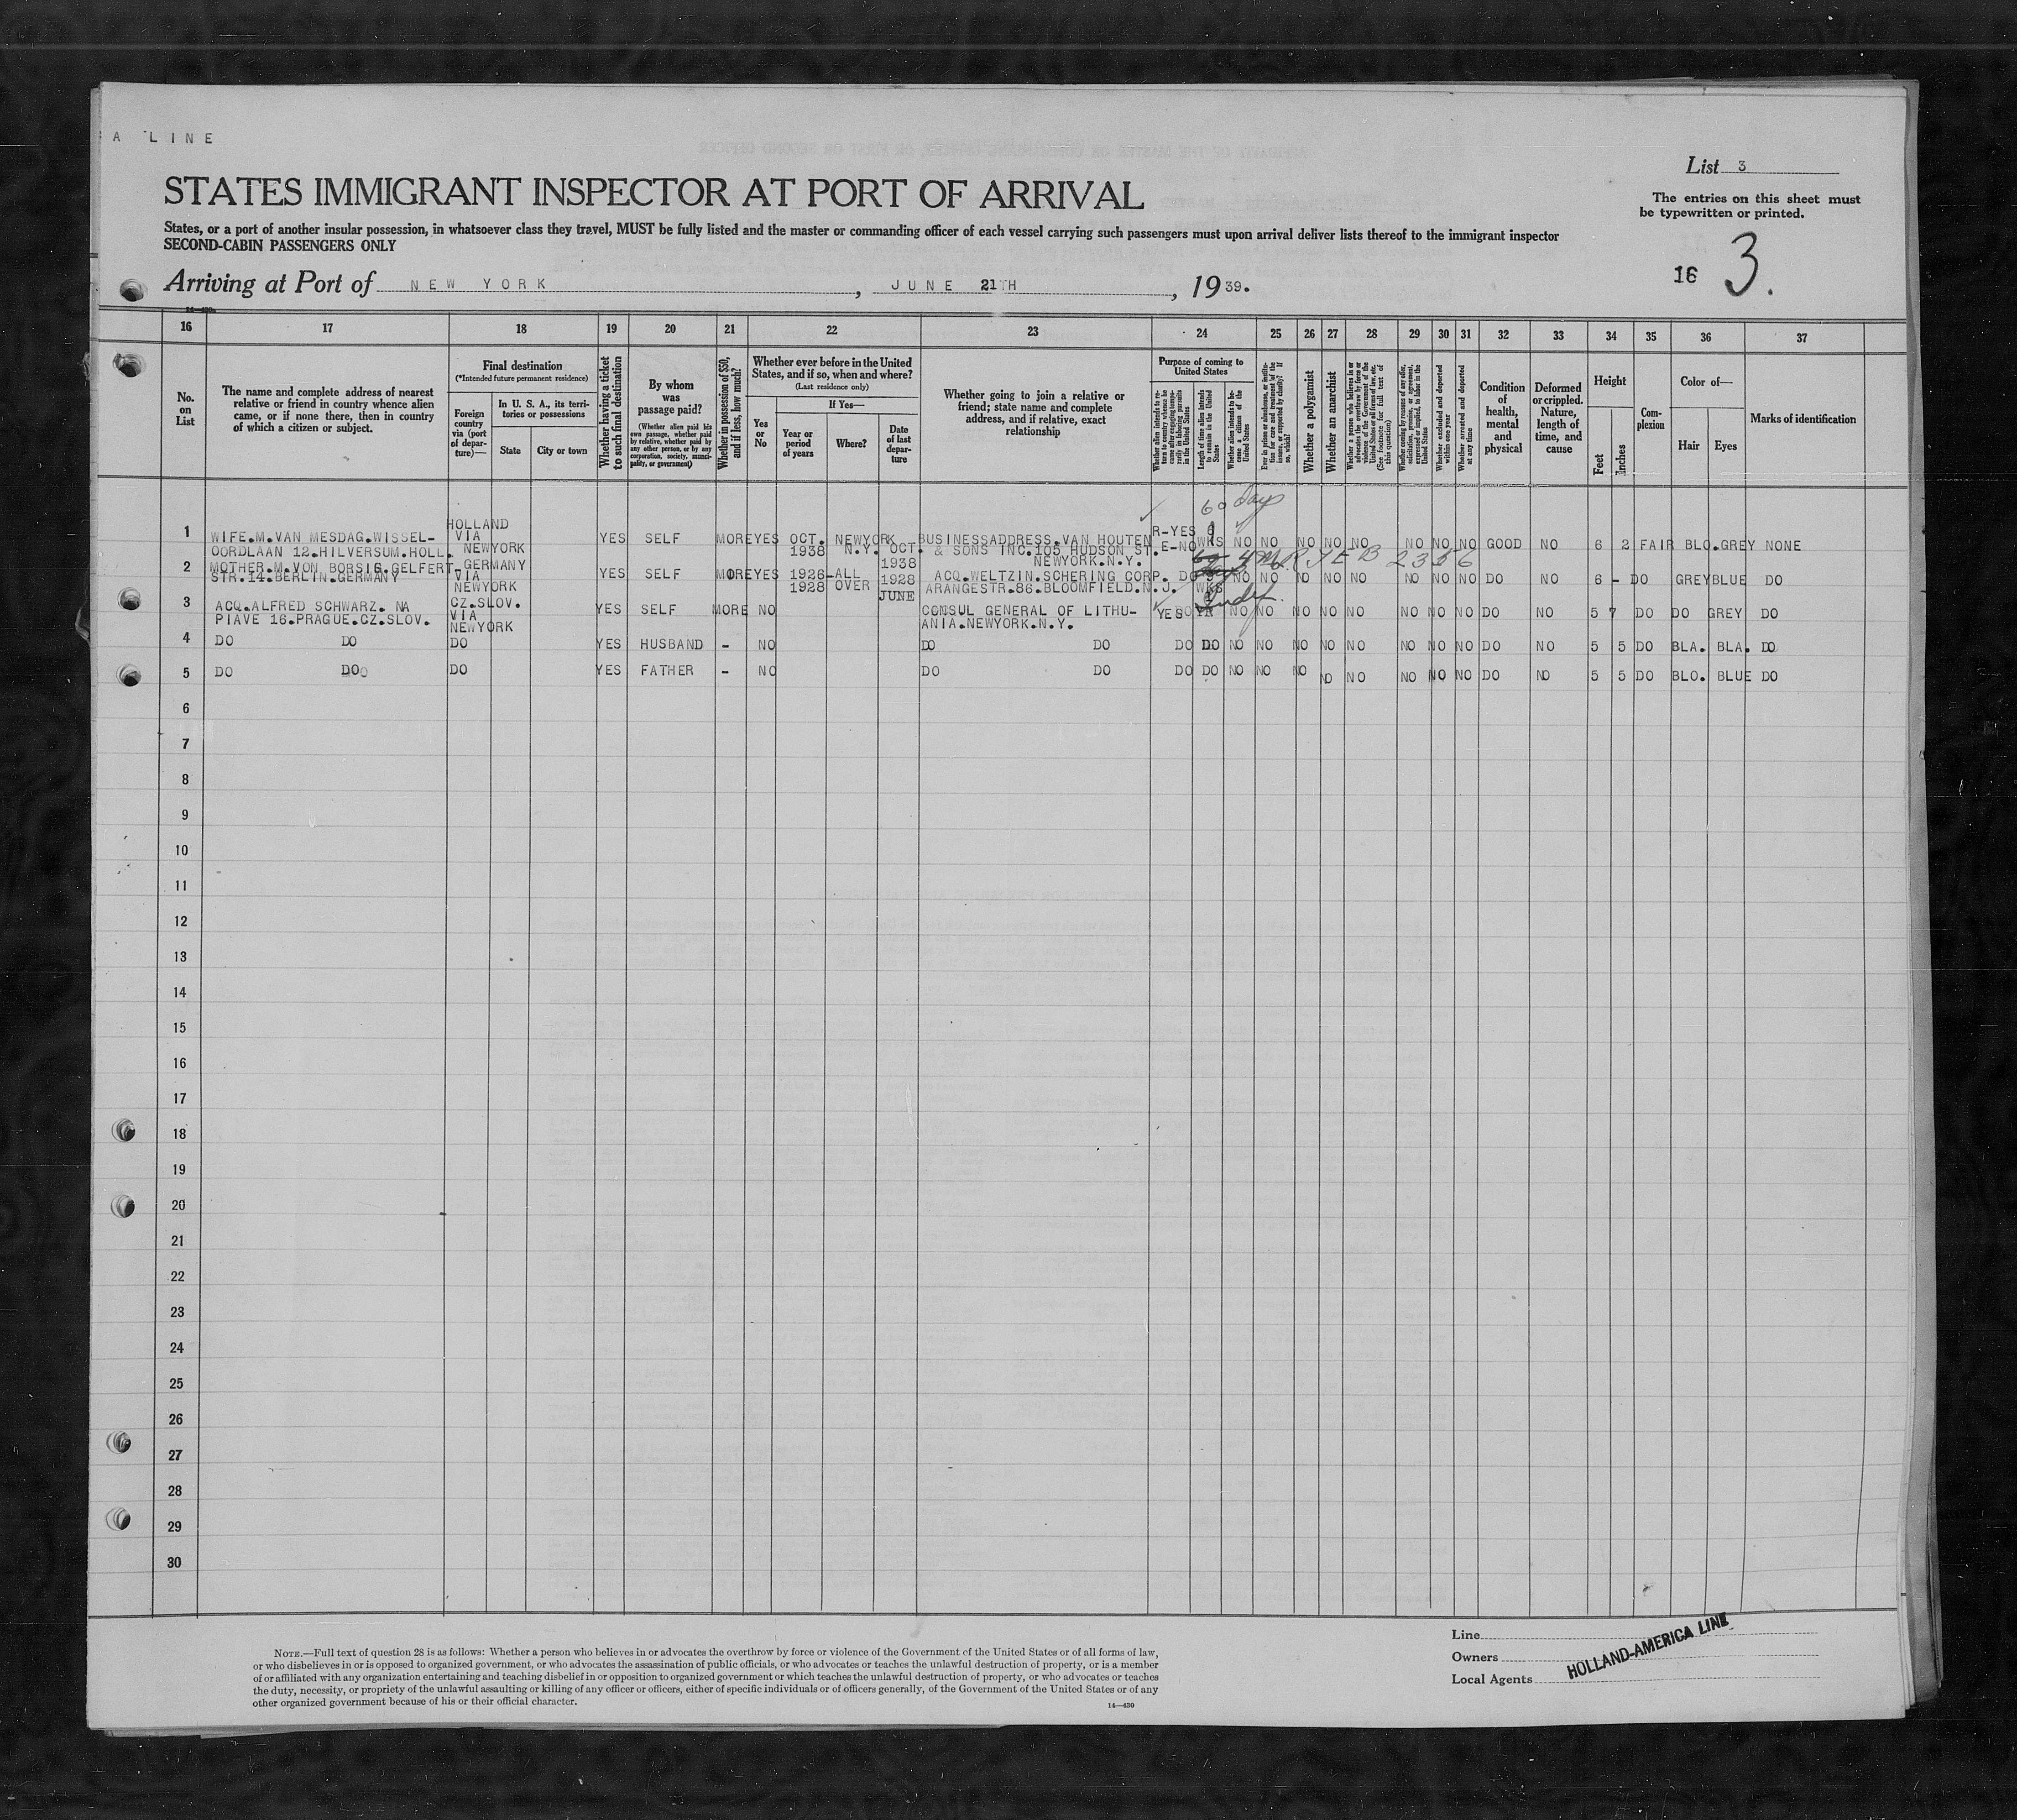 A LINE
List 3
STATES IMMIGRANT INSPECTOR AT PORT OF ARRIVAL
The entries on this sheet must
be typewritten or printed.
States, or a port of another insular possession, in whatsoever class they travel, MUST be fully listed and the master or commanding officer of each vessel carrying such passengers must upon arrival deliver lists thereof to the immigrant inspector
SECOND-CABIN PASSENGERS ONLY
16 3.
Arriving at Port of NEW YORK, JUNE 21TH, 1939.
16 17 18 19 20 21 22 23 24 25 26 27 28 29 30 31 32 33 34 35 36 37
No. on List
The name and complete address of nearest
relative or friend in country whence alien
came, or if none there, then in country
of which a citizen or subject.
Final destination
(*Intended future permanent residence)
Foreign country via (port of departure)—
In U. S. A., its territories or possessions
State
City or town
Whether having a ticket to such final destination
By whom was passage paid?
(Whether alien paid his own passage, whether paid by relative, whether paid by any other person, or by any corporation, society, municipality, or government)
Whether in possession of $50, and if less, how much?
Whether ever before in the United States, and if so, when and where?
(Last residence only)
Yes or No
If Yes—
Year or period of years
Where?
Date of last departure
Whether going to join a relative or
friend; state name and complete
address, and if relative, exact
relationship
Purpose of coming to United States
Whether alien intends to return to country whence he came after engaging temporarily in laboring pursuits in the United States
Length of time alien intends to remain in the United States
Whether alien intends to become a citizen of the United States
Whether a polygamist
Whether an anarchist
Whether excluded and deported within one year
Whether arrested and deported at any time
Condition of health, mental and physical
Deformed or crippled. Nature, length of time, and cause
Height
Feet
Inches
Complexion
Color of—
Hair
Eyes
Marks of identification
60 days
1 WIFE.M.VAN MESDAG.WISSEL- HOLLAND VIA YES SELF MORE YES OCT. NEWYORK BUSINESSADDRESS.VAN HOUTEN R-YES NO NO NO NO NO NO NO NO GOOD NO 6 2 FAIR BLO. GREY NONE
OORDLAAN 12.HILVERSUM.HOLL. NEWYORK 1938 N.Y. OCT. 1938 & SONS INC.105 HUDSON ST. E-NO WKS
NEWYORK.N.Y.
2 MOTHER.M.VON BORSIG.GELFERT- GERMANY VIA YES SELF MORE YES 1926- ALL 1928 ACQ.WELTZIN.SCHERING CORP. DO 9 NO NO NO NO NO NO NO NO DO NO 6 - DO GREY BLUE DO
STR.14.BERLIN.GERMANY NEWYORK 1928 OVER JUNE ARANGESTR.86.BLOOMFIELD.N.J. WKS
3 ACQ.ALFRED SCHWARZ. NA CZ.SLOV. VIA YES SELF MORE NO CONSUL GENERAL OF LITHU- YES NO NO NO NO NO NO NO NO DO NO 5 7 DO DO GREY DO
PIAVE 16.PRAGUE.CZ.SLOV. NEWYORK ANIA.NEWYORK.N.Y.
4 DO DO DO YES HUSBAND - NO DO DO DO DO NO NO NO NO NO NO NO NO DO NO 5 5 DO BLA. BLA. DO
5 DO DO DO YES FATHER - NO DO DO DO DO NO NO NO NO NO NO NO NO DO NO 5 5 DO BLO. BLUE DO
6
7
8
9
10
11
12
13
14
15
16
17
18
19
20
21
22
23
24
25
26
27
28
29
30
NOTE.—Full text of question 28 is as follows: Whether a person who believes in or advocates the overthrow by force or violence of the Government of the United States or of all forms of law,
or who disbelieves in or is opposed to organized government, or who advocates the assassination of public officials, or who advocates or teaches the unlawful destruction of property, or is a member
of or affiliated with any organization entertaining and teaching disbelief in or opposition to organized government or which teaches the unlawful destruction of property, or who advocates or teaches
the duty, necessity, or propriety of the unlawful assaulting or killing of any officer or officers, either of specific individuals or of officers generally, of the Government of the United States or of any
other organized government because of his or their official character.
14—430
Line
Owners
Local Agents
HOLLAND-AMERICA LINE